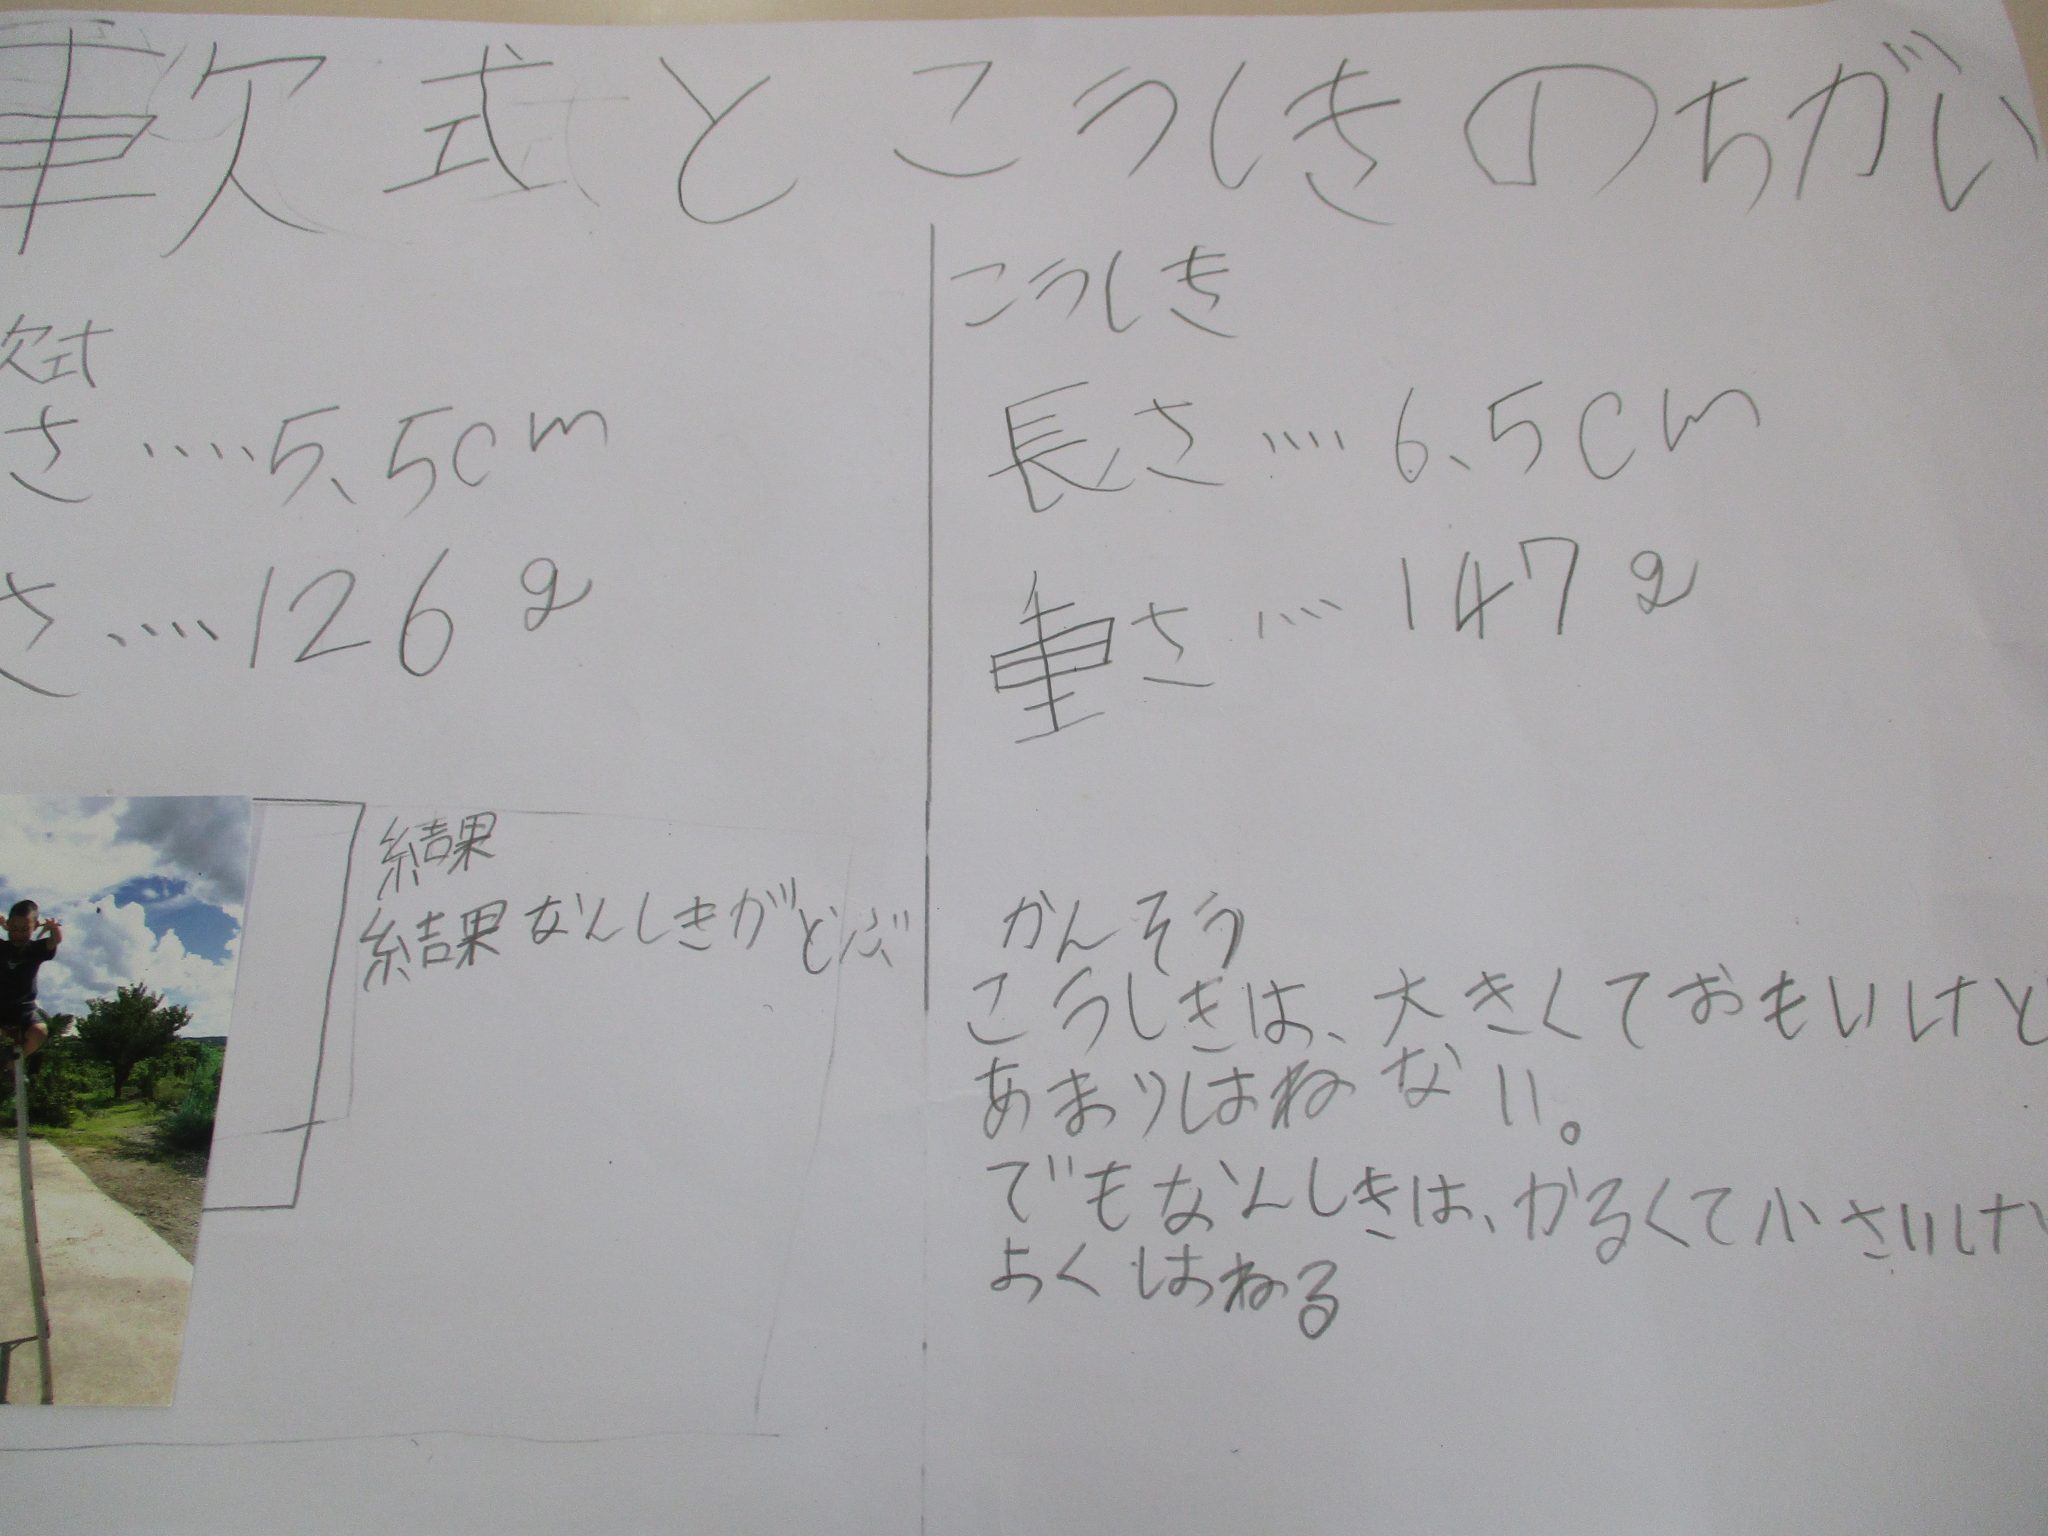 軟式とこうしきのちがい
軟式
さ‥‥5.5cm
さ‥‥126g
こうしき
長さ‥‥6.5cm
重さ‥‥147g
結果
結果なんしきがとぶ
かんそう
こうしきは、大きくておもいけど
あまりはねない。
でもなんしきは、かるくて小さいけど
よくはねる